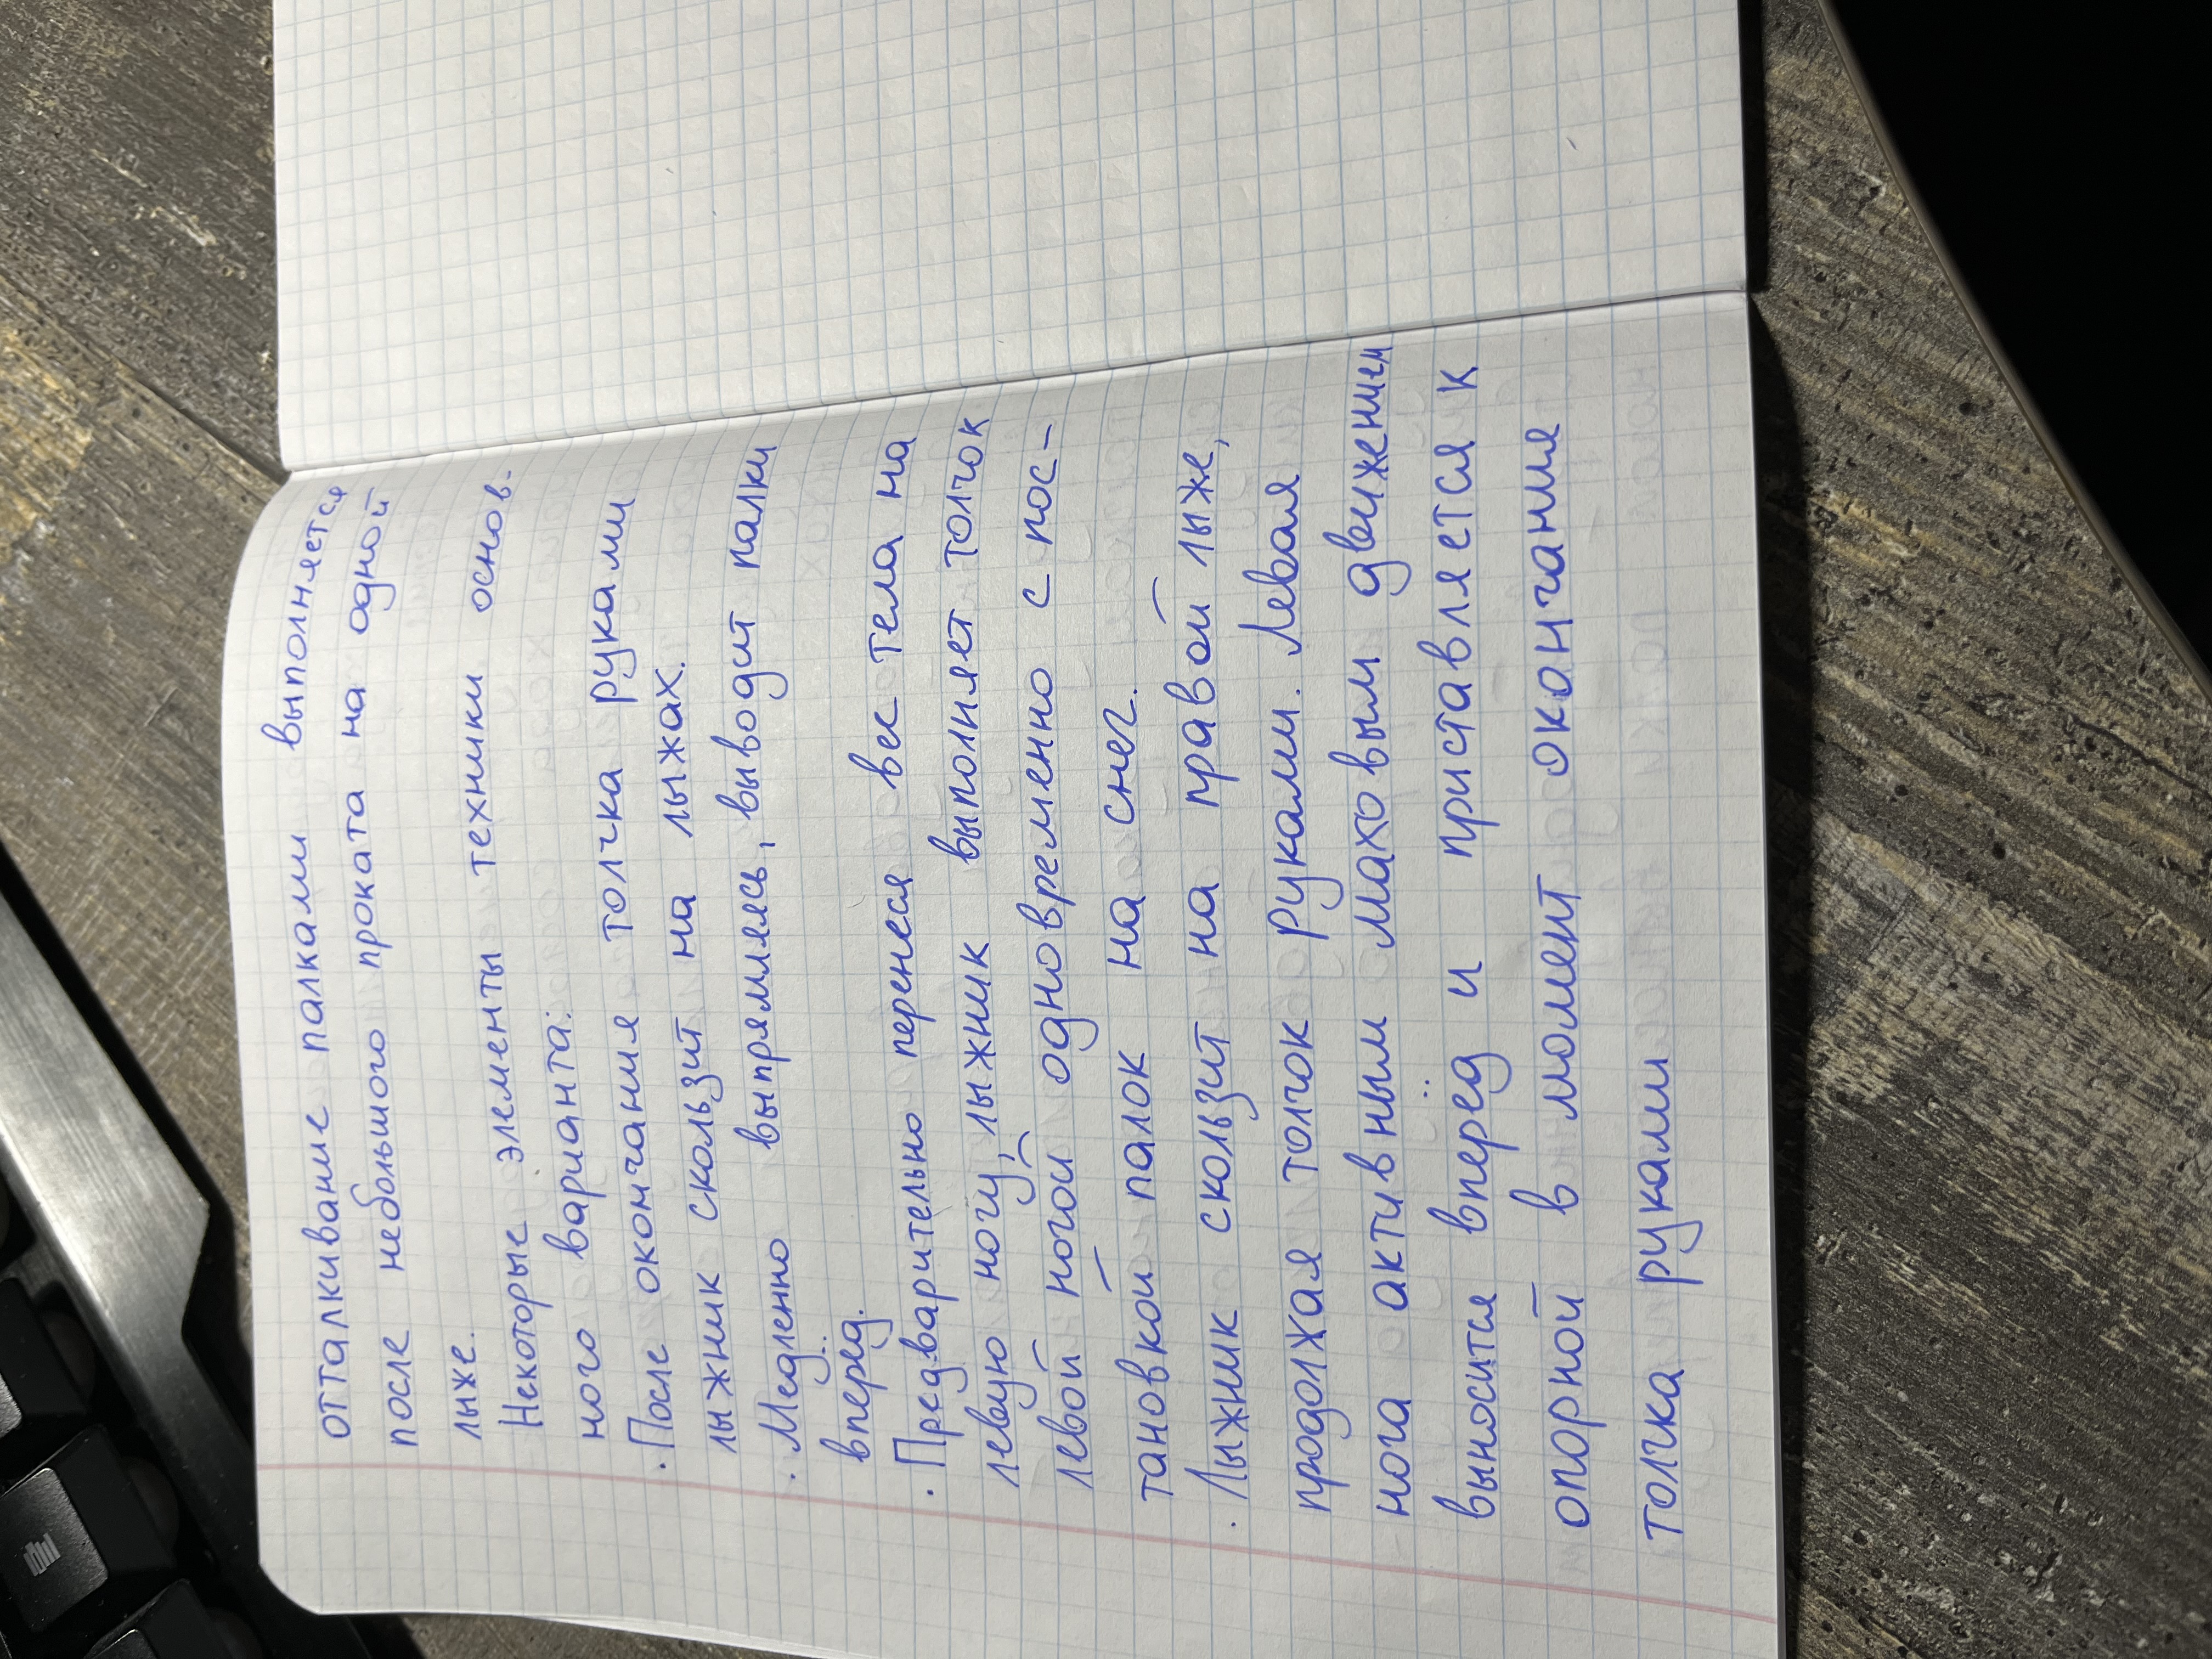 отталкивание палками выполняется
после небольшого проката на одной
лыже.
Некоторые элементы техники основ-
ного варианта:
· После окончания толчка руками
лыжник скользит на лыжах.
· Медленно выпрямляясь, выводит палки
вперёд.
· Предварительно перенеся вес тела на
левую ногу, лыжник выполняет толчок
левой ногой одновременно с пос-
тановкой палок на снег.
· Лыжник скользит на правой лыже,
продолжая толчок руками. Левая
нога активным маховым движением
выносится вперёд и приставляется к
опорной в момент окончания
толчка руками